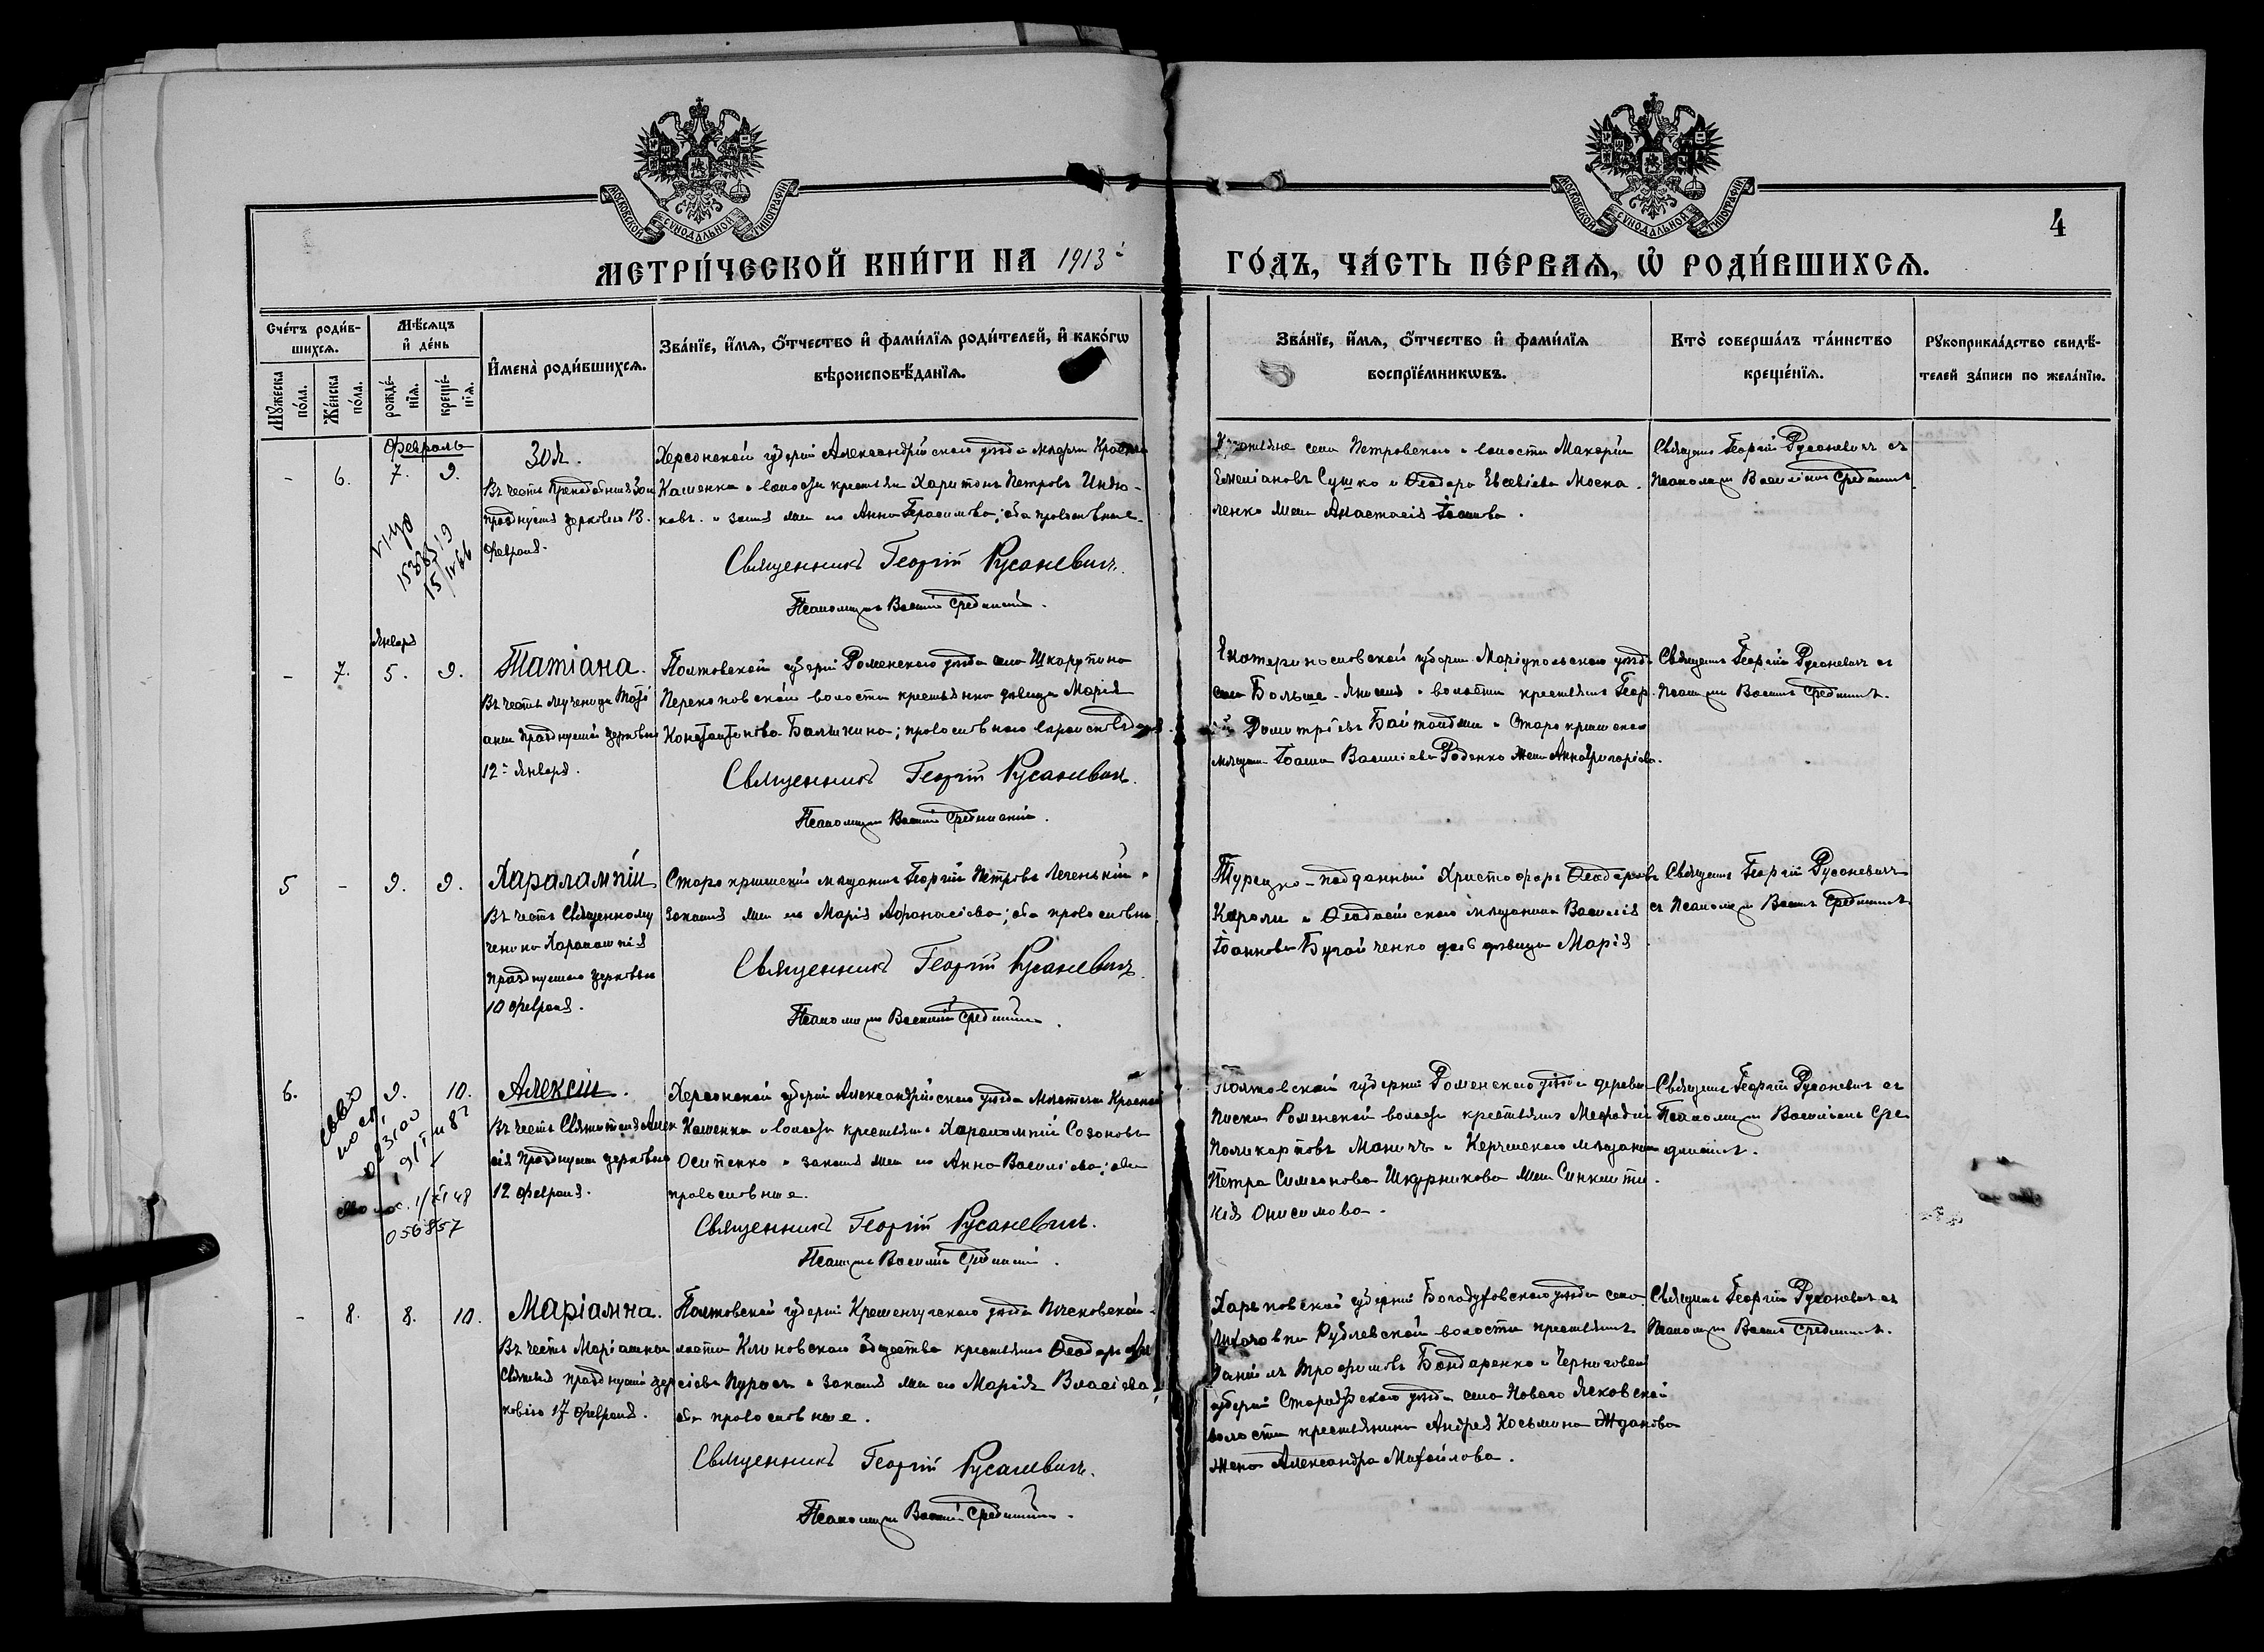 МОСКОВСКОЙ СѴНОДАЛЬНОЙ ТИПОГРАФІИ
МОСКОВСКОЙ СѴНОДАЛЬНОЙ ТИПОГРАФІИ
4
МЕТРИ́ЧЕСКОЙ КНИ́ГИ НА 1913й
ГО́ДЪ, ЧА́СТЬ ПЕ́РВАѦ, Ѡ҆ РОДИ́ВШИХСѦ.
Сче́тъ роди́в-
шихсѧ.
Мꙋ́жеска по́ла.
Же́нска по́ла.
Мѣ́сѧцъ
и҆ де́нь
рожде́-
нїѧ.
креще́-
нїѧ.
И҆мена̀ роди́вшихсѧ.
Зва́нїе, и҆́мѧ, ѻ҆́тчество и҆ фами́лїѧ роди́телей, и҆ како́гѡ
вѣроисповѣ́данїѧ.
Зва́нїе, и҆́мѧ, ѻ҆́тчество и҆ фами́лїѧ
воспрїе́мникѡвъ.
Кто̀ соверша́лъ та́инство
креще́нїѧ.
Рꙋкоприкла́дство свидѣ́-
телей за́писи по жела́нїю.
Февраль
- 6. 7. 9.
Зоя.
Въ честь Преподобныя Зои
празднуемыя церковью 13.
февраля.
Херсонской губерніи Александрійскаго уѣзда мѣстечка Красной
Каменки волости крестьянин Харитонъ Петровъ
и законная жена его Анна Герасимова; оба православные.
Священникъ Георгій Русаневичъ.
Псаломщикъ Василій Срединскій.
Крестьяне села Петровскаго волости Макарій
Емеліановъ Сушко и Ѳеодора Евсевіева Моска-
ленко жена Анастасія Іоаннова.
Священникъ Георгій Русаневичъ съ
Псаломщикомъ Василіемъ Срединскимъ.
15/IV 66
Января
- 7. 5. 9.
Татіана.
Въ честь мученицы Татіаны празднуемой церковью
12го Января.
Полтовской губерніи Роменскаго уѣзда села Шкарупина
Перекоповской волости крестьянка дѣвица Марія
Константинова Балыкина; православнаго вѣроисповѣданія.
Священникъ Георгій Русаневичъ.
Псаломщикъ Василій Срединскій.
Екатеринославской губерніи Маріупольскаго уѣзда
села Больше-Янисоля волости крестьянинъ Георгій
Димитріевъ и Старокрымскаго
мѣщанина Іоанна Василіева Роденко жена Анна Григоріева.
Священникъ Георгій Русаневичъ съ
Псаломщикомъ Василіемъ Срединскимъ.
5 - 9. 9.
Харалампій
Въ честь Священному
ченика Харалампія
празднуемаго церковью
10 февраля.
Старокрымскій мѣщанинъ Георгій Петровъ Леченькій и
законная жена его Марія Афанасіева; оба православные.
Священникъ Георгій Русаневичъ.
Псаломщикъ Василій Срединскій.
Турецко-подданный Христофоръ Ѳеодоровъ
Кароли и Ѳеодосійскаго мѣщанина Василія
Іоаннова Бугайченко дочь дѣвица Марія
Священникъ Георгій Русаневичъ
съ Псаломщикомъ Василіемъ Срединскимъ
6. 9. 10.
Алексій.
Въ честь Святителя Алексія празднуемаго церковью
12 февраля.
Херсонской губерніи Александрійскаго уѣзда мѣстечка Красной
Каменки волости крестьянинъ Харалампій Созоновъ
Осипенко и законная жена его Анна Василіева; оба
православные.
Священникъ Георгій Русаневичъ.
Псаломщикъ Василій Срединскій.
Полтовской губерніи Роменскаго уѣзда деревни
Пески Роменской волости крестьянинъ Меѳодій
Поликарповъ Маничъ и Керченскаго мѣщанина
Петра Симеонова Шкурникова жена Синклити-
кія Онисимова.
Священникъ Георгій Русаневичъ съ
Псаломщикомъ Василіемъ Сре
динскимъ.
056857
- 8. 8. 10.
Маріамна.
Въ честь Маріамны
Святыя празднуемой цер
ковью 17 февраля.
Полтовской губерніи Кременчугскаго уѣзда
волости Клиновскаго Общества крестьянинъ Ѳеодоръ
Пурасъ и законная жена его Марія Власіева;
оба православные.
Священникъ Георгій Русаневичъ.
Псаломщикъ Василій Срединскій.
Харьковской губерніи Богодуховскаго уѣзда села
Рублевской волости крестьянинъ
Даніилъ Трофимовъ Бондаренко и Черниговской
губерніи Стародубскаго уѣзда села Новаго Ясковской
волости крестьянина Андрея Косьмина Жданова
жена Александра Михайлова.
Священникъ Георгій Русаневичъ съ
Псаломщикомъ Василіемъ Срединскимъ.